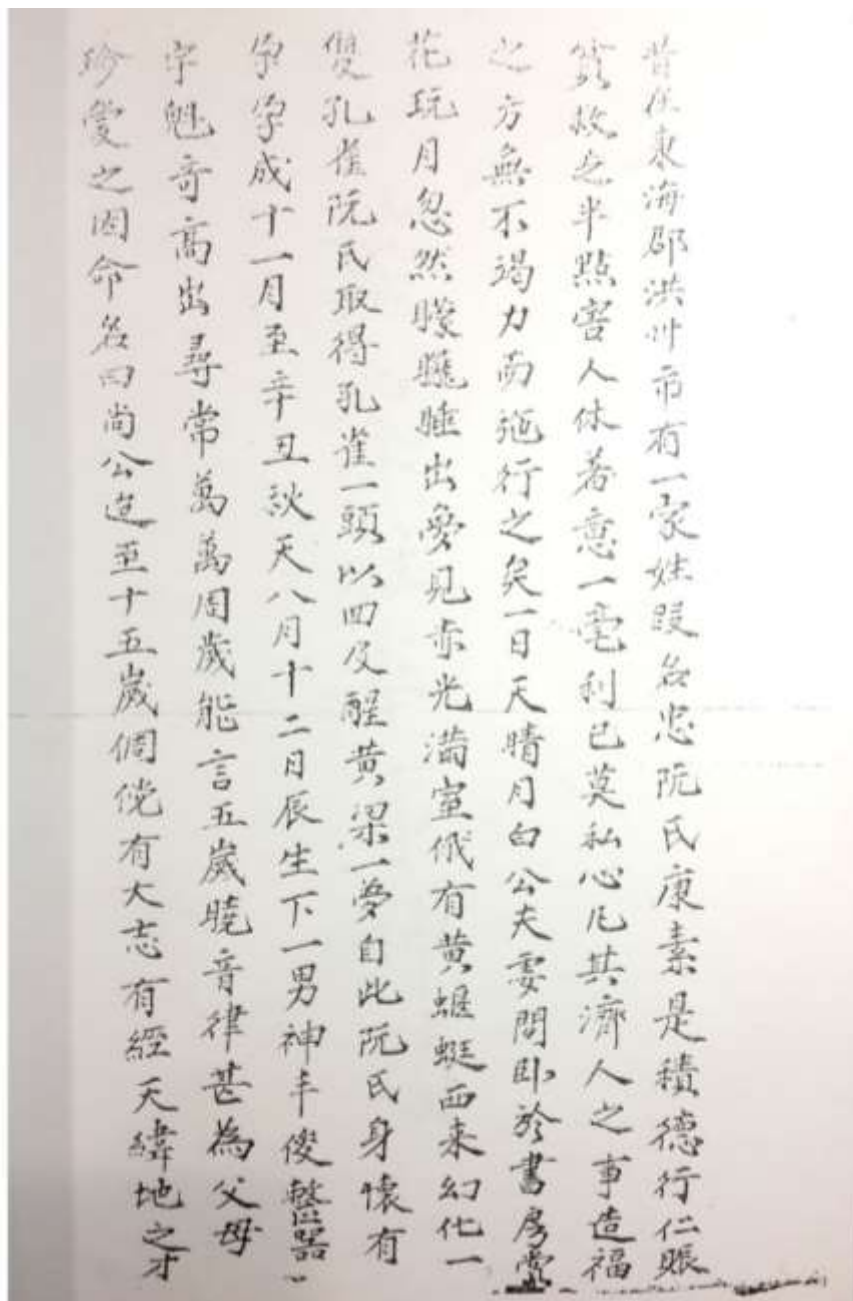 昔在東海郡洪州市有一家姓段名忠阮氏康素是積德行仁賬
貧救乏半點害人休着意一毫利己莫私心凡其濟人之事造福
之方無不竭力而施行之矣一日天晴月白公夫妻閒臥於書房賞
花玩月忽然朦朧睡出夢見赤光滿室俄有黃蝘蜓西来幻化一
雙孔雀阮氏取得孔雀一頭以回及醒黃梁一夢自此阮氏身懷有
孕孕成十一月至辛丑秋天八月十二日辰生下一男神丰俊整器
宇魁奇高出尋常萬萬周歲能言五歲曉音律甚為父母
珍愛之因命名曰尚公迨至十五歲倜儻有大志有經天緯地之才